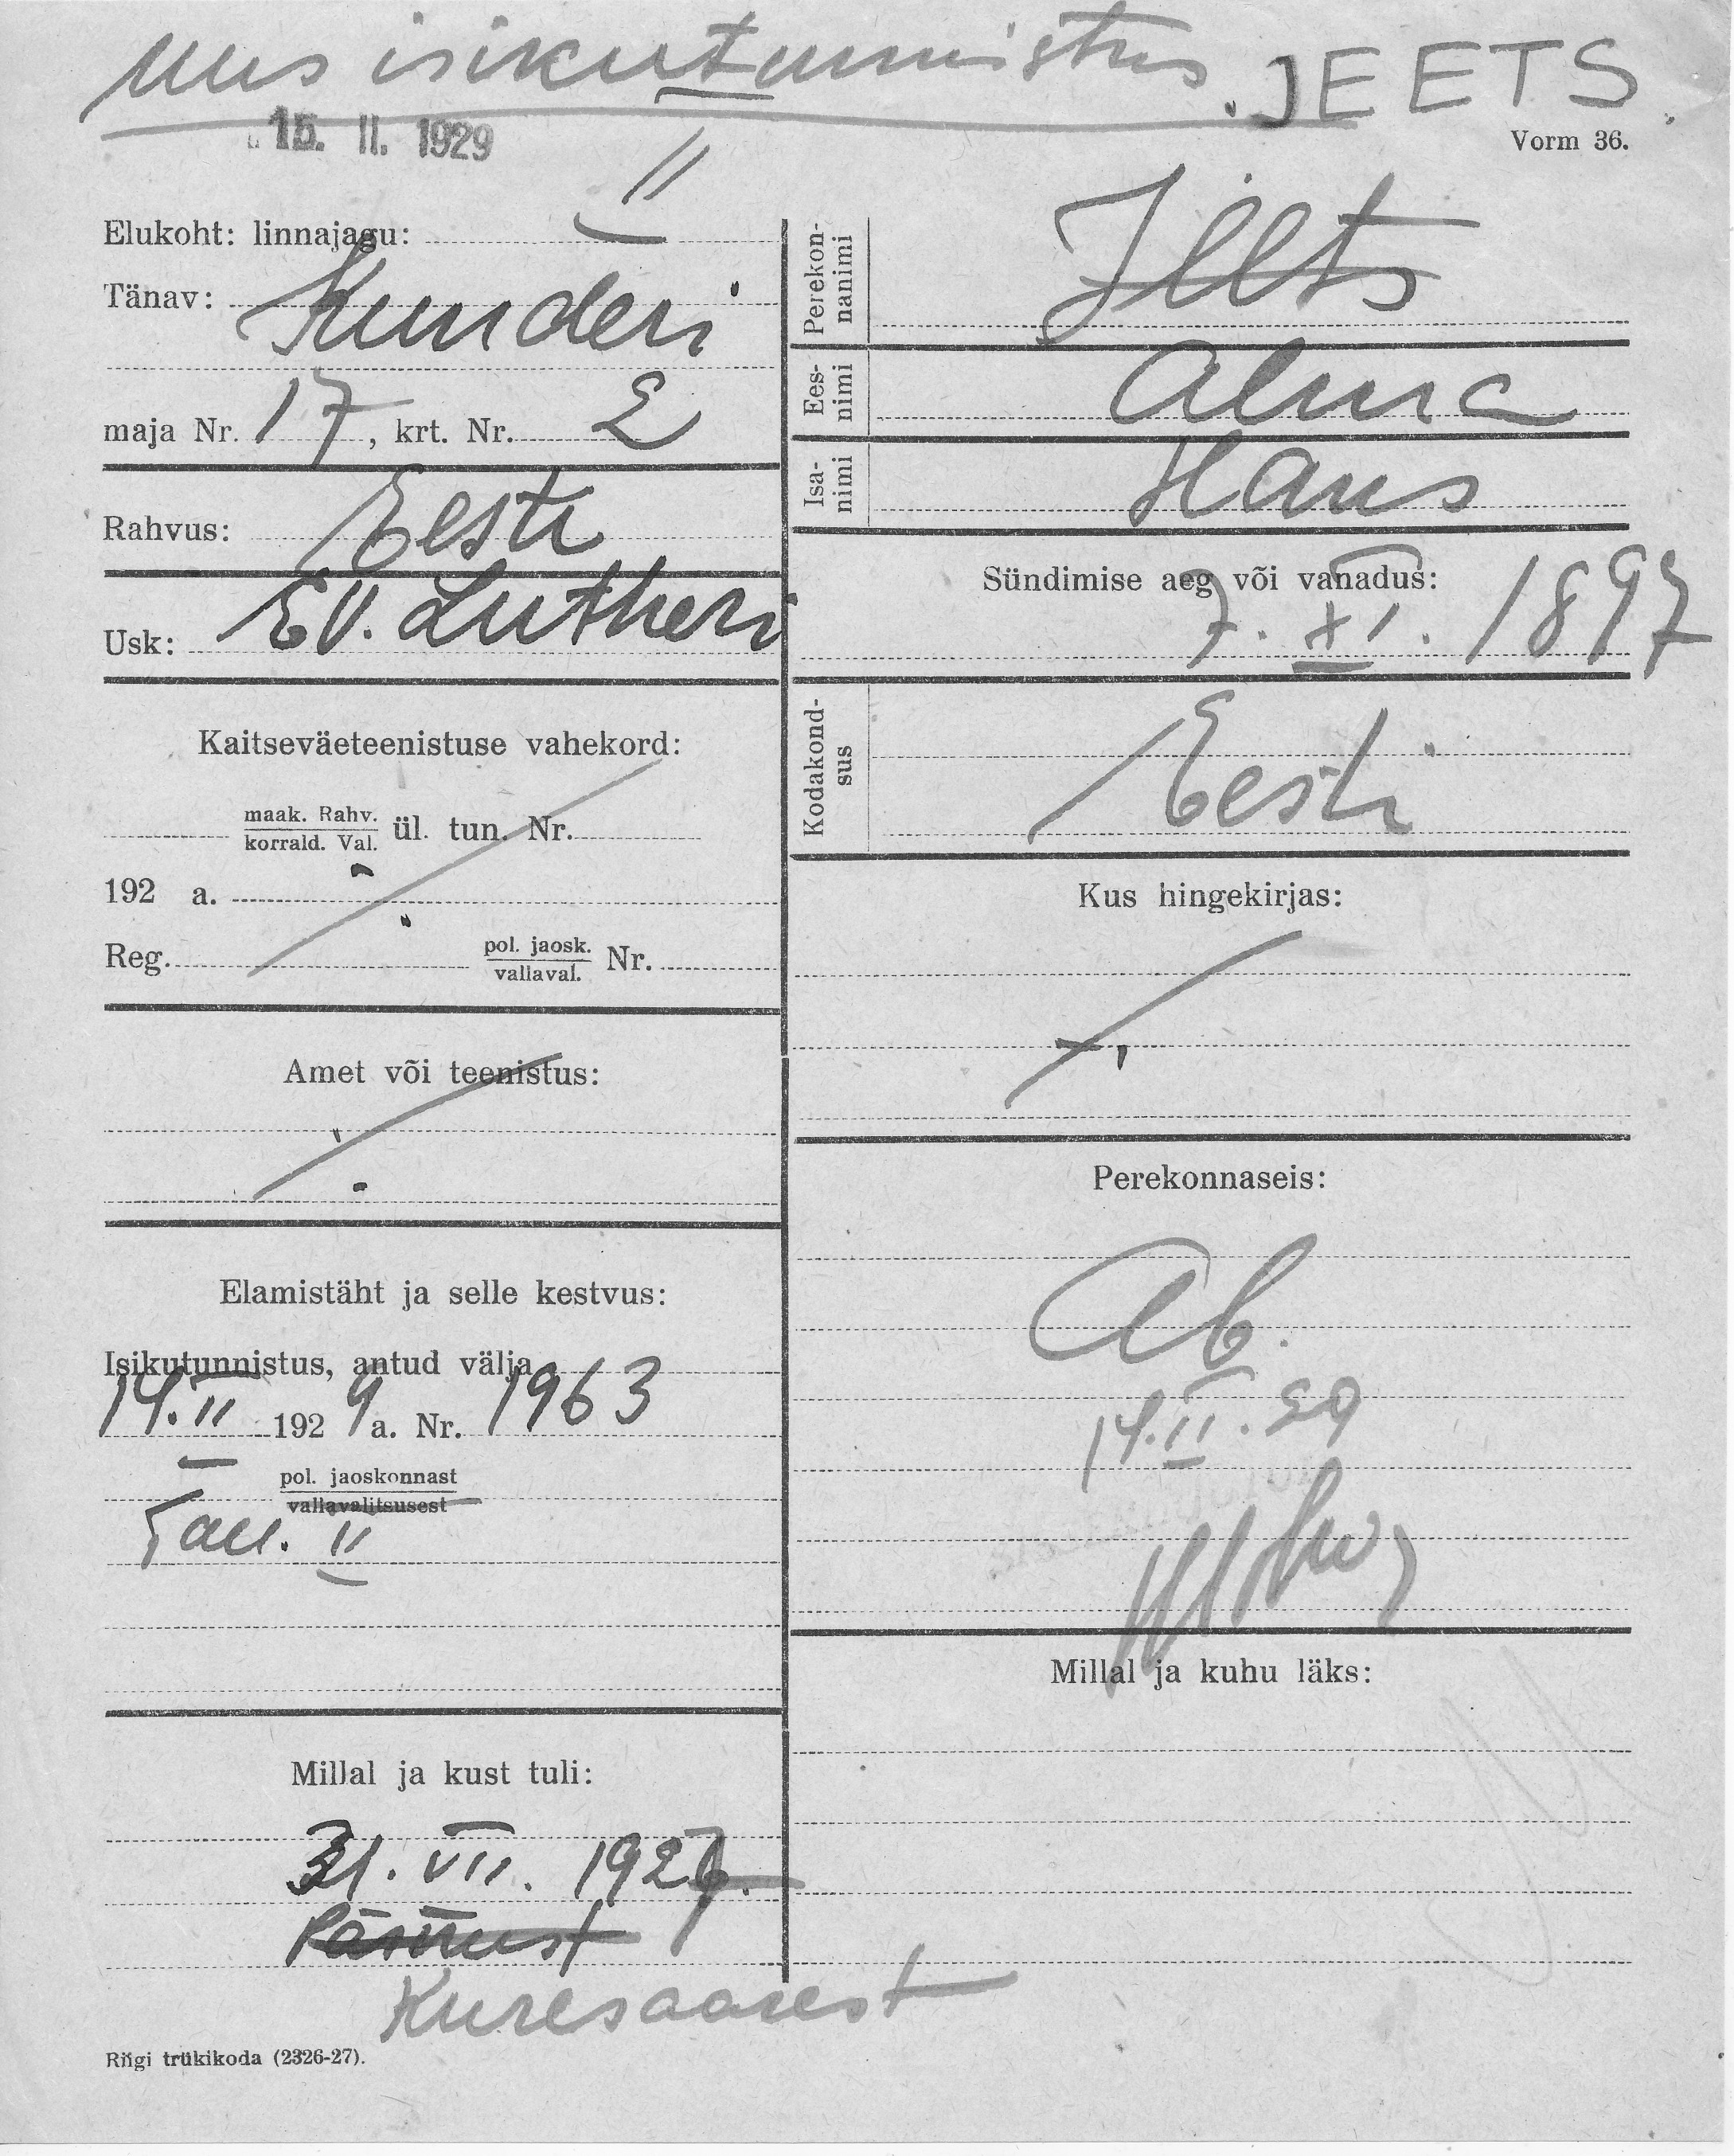 uus isikutunnistus. JEETS
15. II. 1929
Vorm 36.
Elukoht: linnajagu: II
Tänav: Kunderi
maja Nr. 17, krt. Nr. 2
Rahvus: Eesti
Usk: Ev. Lutheri
Kaitseväeteenistuse vahekord:
maak. Rahv.
korrald. Val. ül. tun. Nr.
192 a.
Reg. pol. jaosk.
vallaval. Nr.
Amet või teenistus:
Elamistäht ja selle kestvus:
Isikutunnistus, antud välja
14. II 1929 a. Nr. 1963
pol. jaoskonnast
vallavalitsusest
Tall. II
Millal ja kust tuli:
31. VII. 1927.
Pärnust
Kuresaarest
Riigi trükikoda (2326-27).
Perekon-
nanimi
Jeets
Ees-
nimi
Alma
Isa-
nimi
Hans
Sündimise aeg või vanadus:
7. XI. 1897
Kodakond-
sus
Eesti
Kus hingekirjas:
Perekonnaseis:
Ab.
14. II. 29
Millal ja kuhu läks: